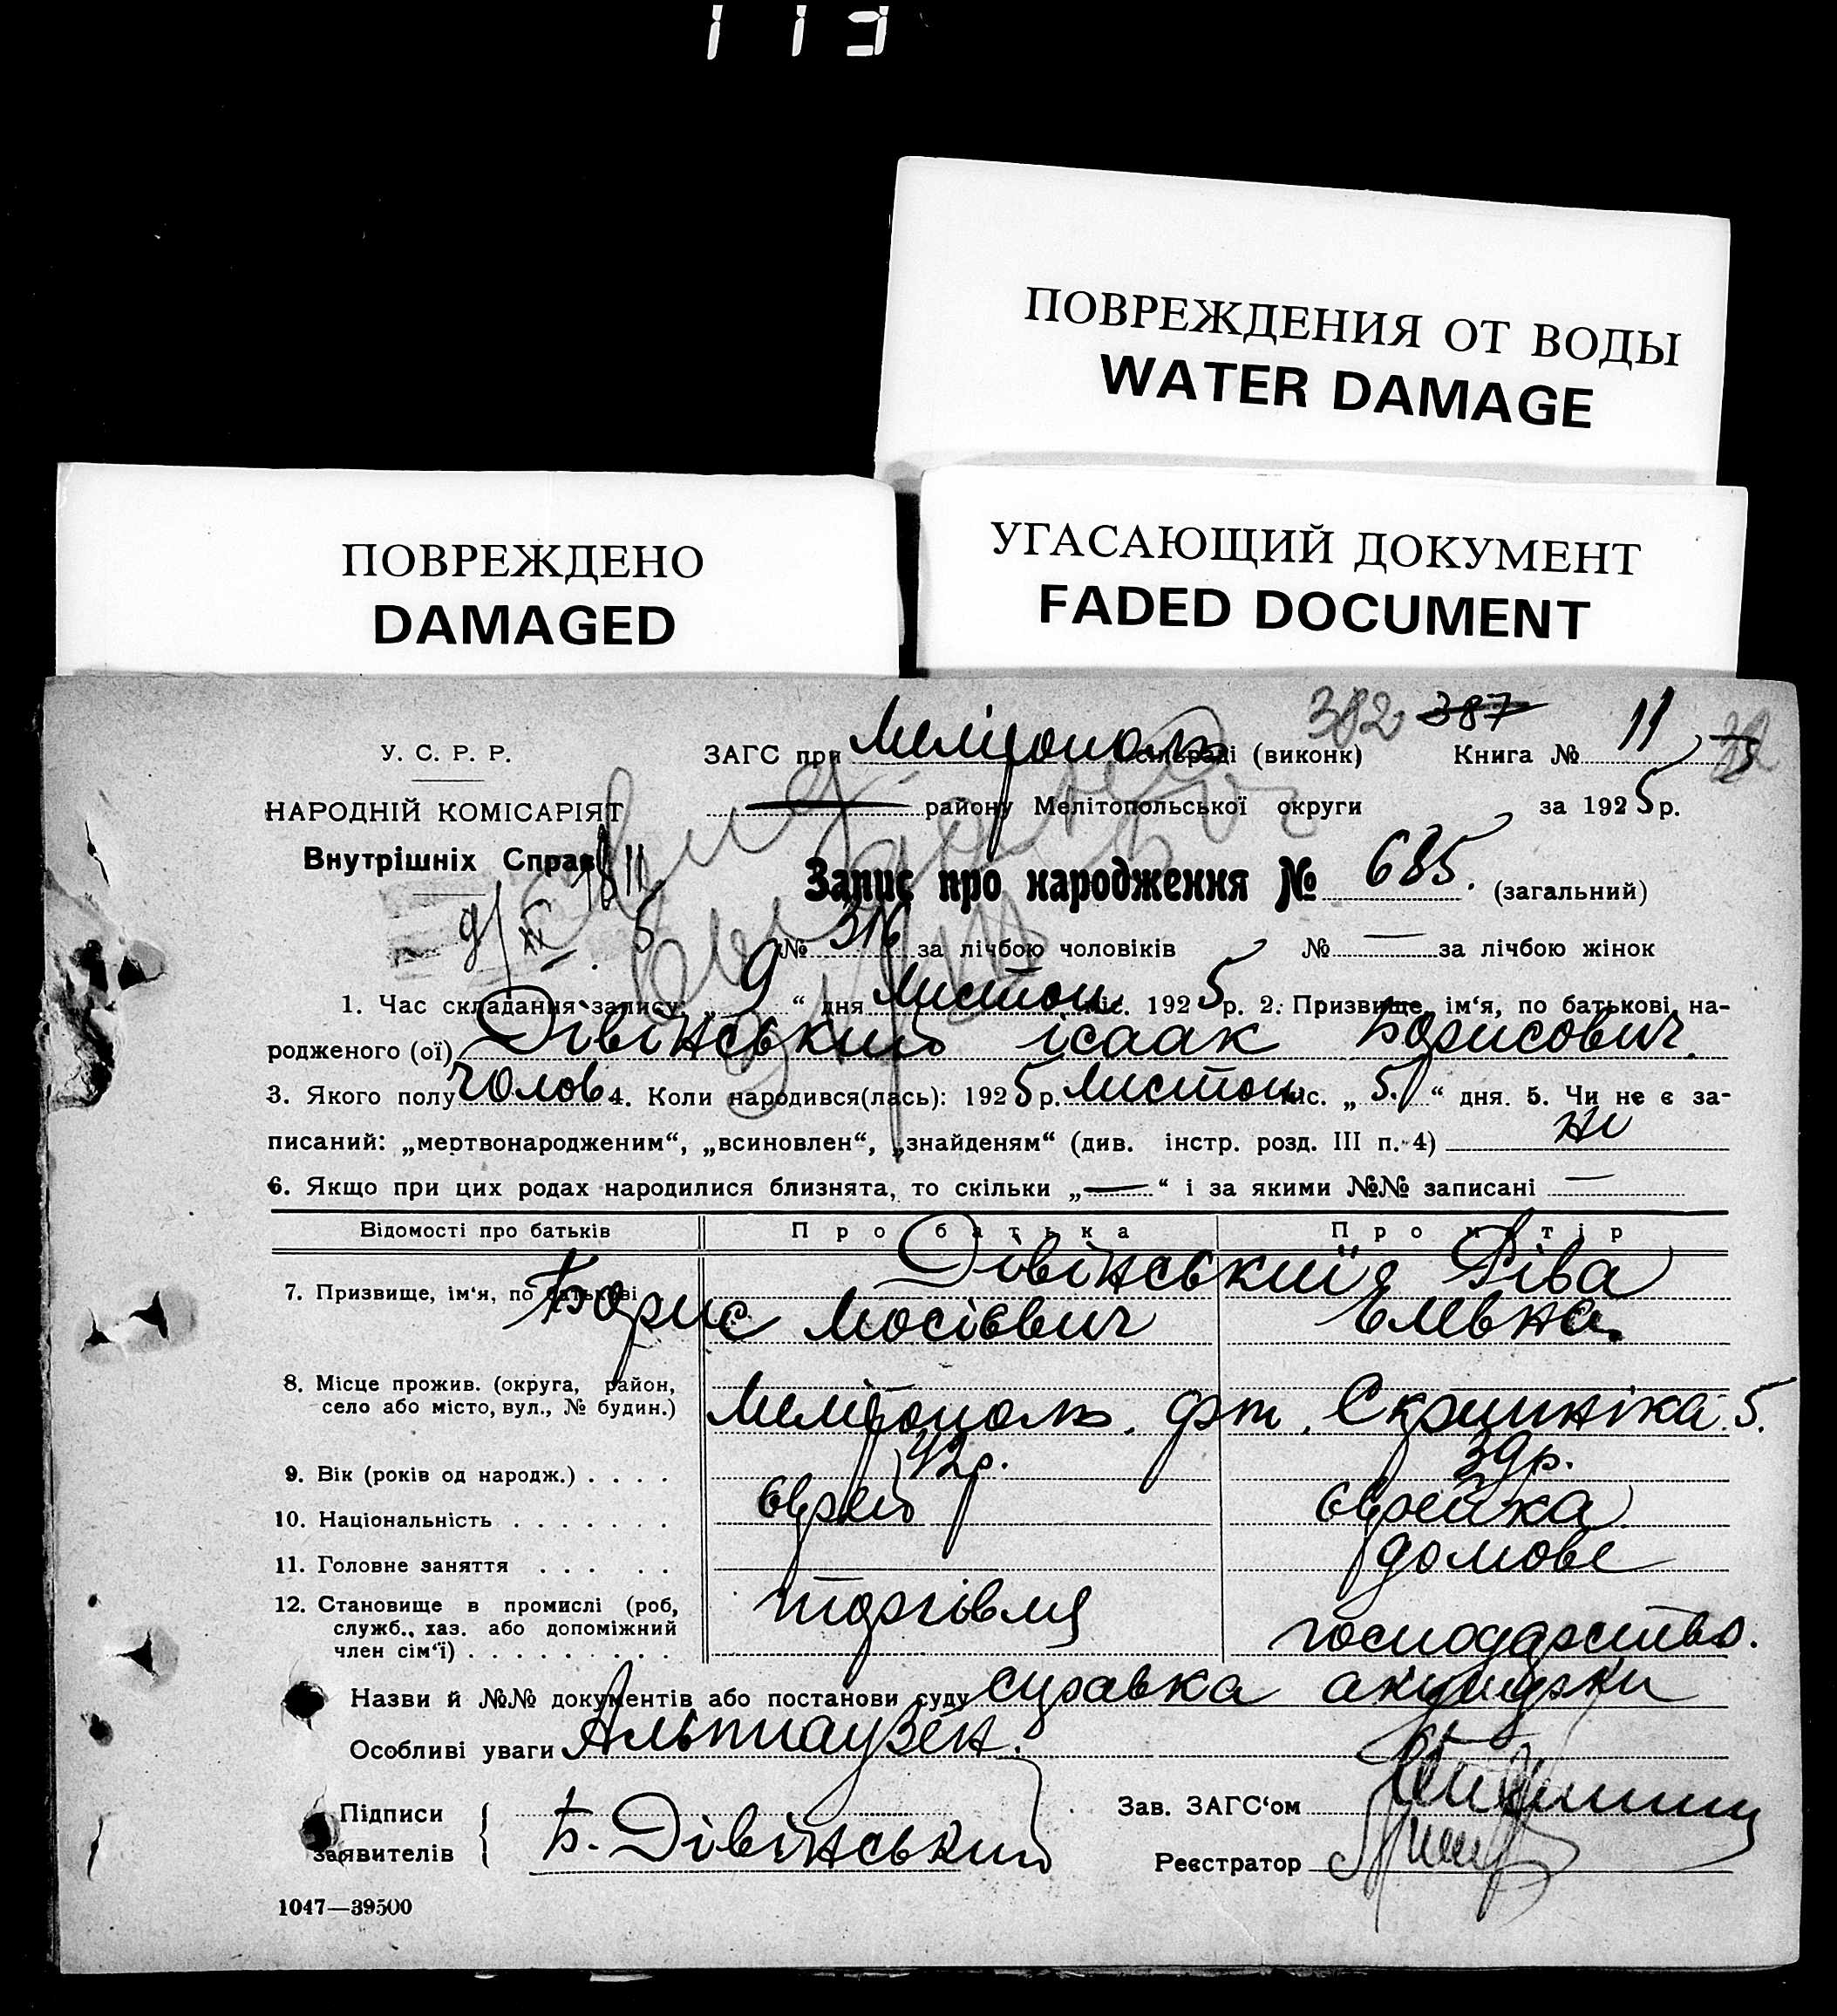 113
ПОВРЕЖДЕНИЯ ОТ ВОДЫ
WATER DAMAGE
ПОВРЕЖДЕНО
DAMAGED
УГАСАЮЩИЙ ДОКУМЕНТ
FADED DOCUMENT
382 387
У. С. Р. Р. ЗАГС при Мелітополь сільраді (виконк) Книга № 11
НАРОДНІЙ КОМІСАРІЯТ району Мелітопольської округи за 1925 р.
Внутрішніх Справ
Запис про народження № 685. (загальний)
№ 316 за лічбою чоловіків № — за лічбою жінок
1. Час складання запису: „9“ дня листоп. міс. 1925 р. 2. Призвище, ім‘я, по батькові на-
родженого (ої) Дівінський Ісаак Борисович.
3. Якого полу чолов 4. Коли народився(лась): 1925 р. листоп. міс. „5.“ дня. 5. Чи не є за-
писаний: „мертвонародженим“, „всиновлен“, „знайденям“ (див. інстр. розд. III п. 4) ні
6. Якщо при цих родах народилися близнята, то скільки „—“ і за якими №№ записані —
Відомості про батьків Про батька Про матір
7. Призвище, ім‘я, по батькові Дівінський Ріва
Борис Мосієвич Елевна.
8. Місце прожив. (округа, район,
село або місто, вул., № будин.) Мелітополь. Скрипніка. 5.
9. Вік (років од народж.) . . . . 42 р. 39 р.
10. Національність . . . . . . . єврей єврейка
11. Головне заняття . . . . . домове
12. Становище в промислі (роб, торгівля
служб., хаз. або допоміжний господарство.
член сім‘ї) . . . . . . . . .
Назви й №№ документів або постанови суду справка акушерки
Особливі уваги Альтгаузен.
Підписи
заявителів { Б. Дівінський
Зав. ЗАГС‘ом
Реєстратор
1047—39500